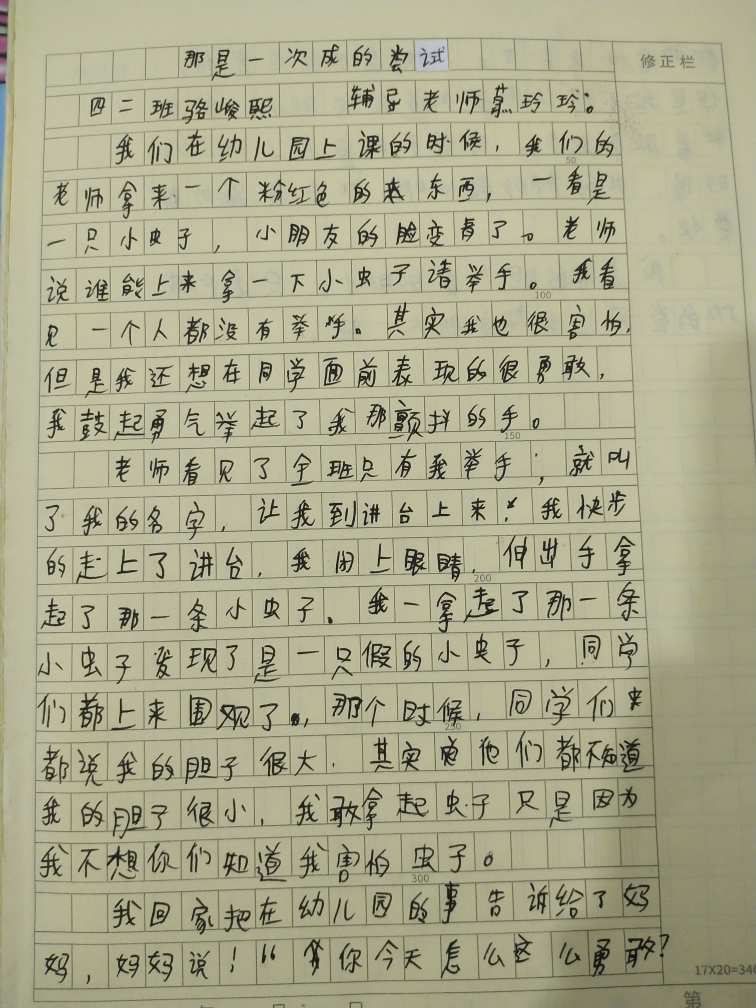 那是一次成的尝试
修正栏
四二班骆峻熙 辅导老师慕玲玲。
我们在幼儿园上课的时候，我们的
50
老师拿来一个粉红色的来东西，一看是
一只小虫子，小朋友的脸变青了。老师
说谁能上来拿一下小虫子请举手。我看
100
见一个人都没有举手。其实我也很害怕，
但是我还想在同学面前表现的很勇敢，
我鼓起勇气举起了我那颤抖的手。
150
老师看见了全班只有我举手，就叫
了我的名字，让我到讲台上来。我快步
的走上了讲台，我闭上眼睛，伸出手拿
200
起了那一条小虫子。我一拿起了那一条
小虫子发现了是一只假的小虫子，同学
们都上来围观了，那个时候，同学们
250
都说我的胆子很大。其实他们都不知道
我的胆子很小，我敢拿起虫子只是因为
我不想你们知道我害怕虫子。
300
我回家把在幼儿园的事告诉给了妈
妈，妈妈说！“你今天怎么这么勇敢？
17X20=340
第